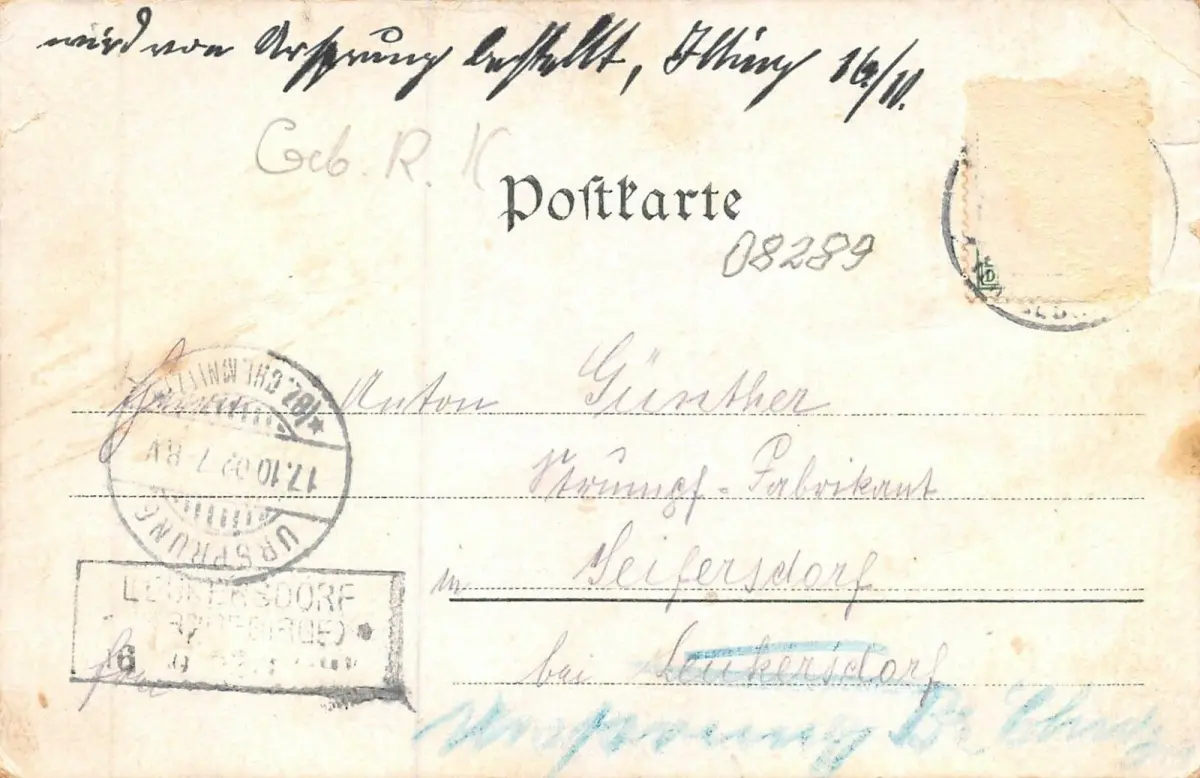 wird von Ursprung bestellt, Illing 16/10.
Geb. R. K
Postkarte
08289
Anton Günther
Strumpf-Fabrikant
in Seifersdorf
bei Leukersdorf
Ursprung Bz. Chemn
(BZ. CHEMNITZ)
17.10.02. 7-8 V
URSPRUNG
LEUKERSDORF
(ERZGEBIRGE)
16